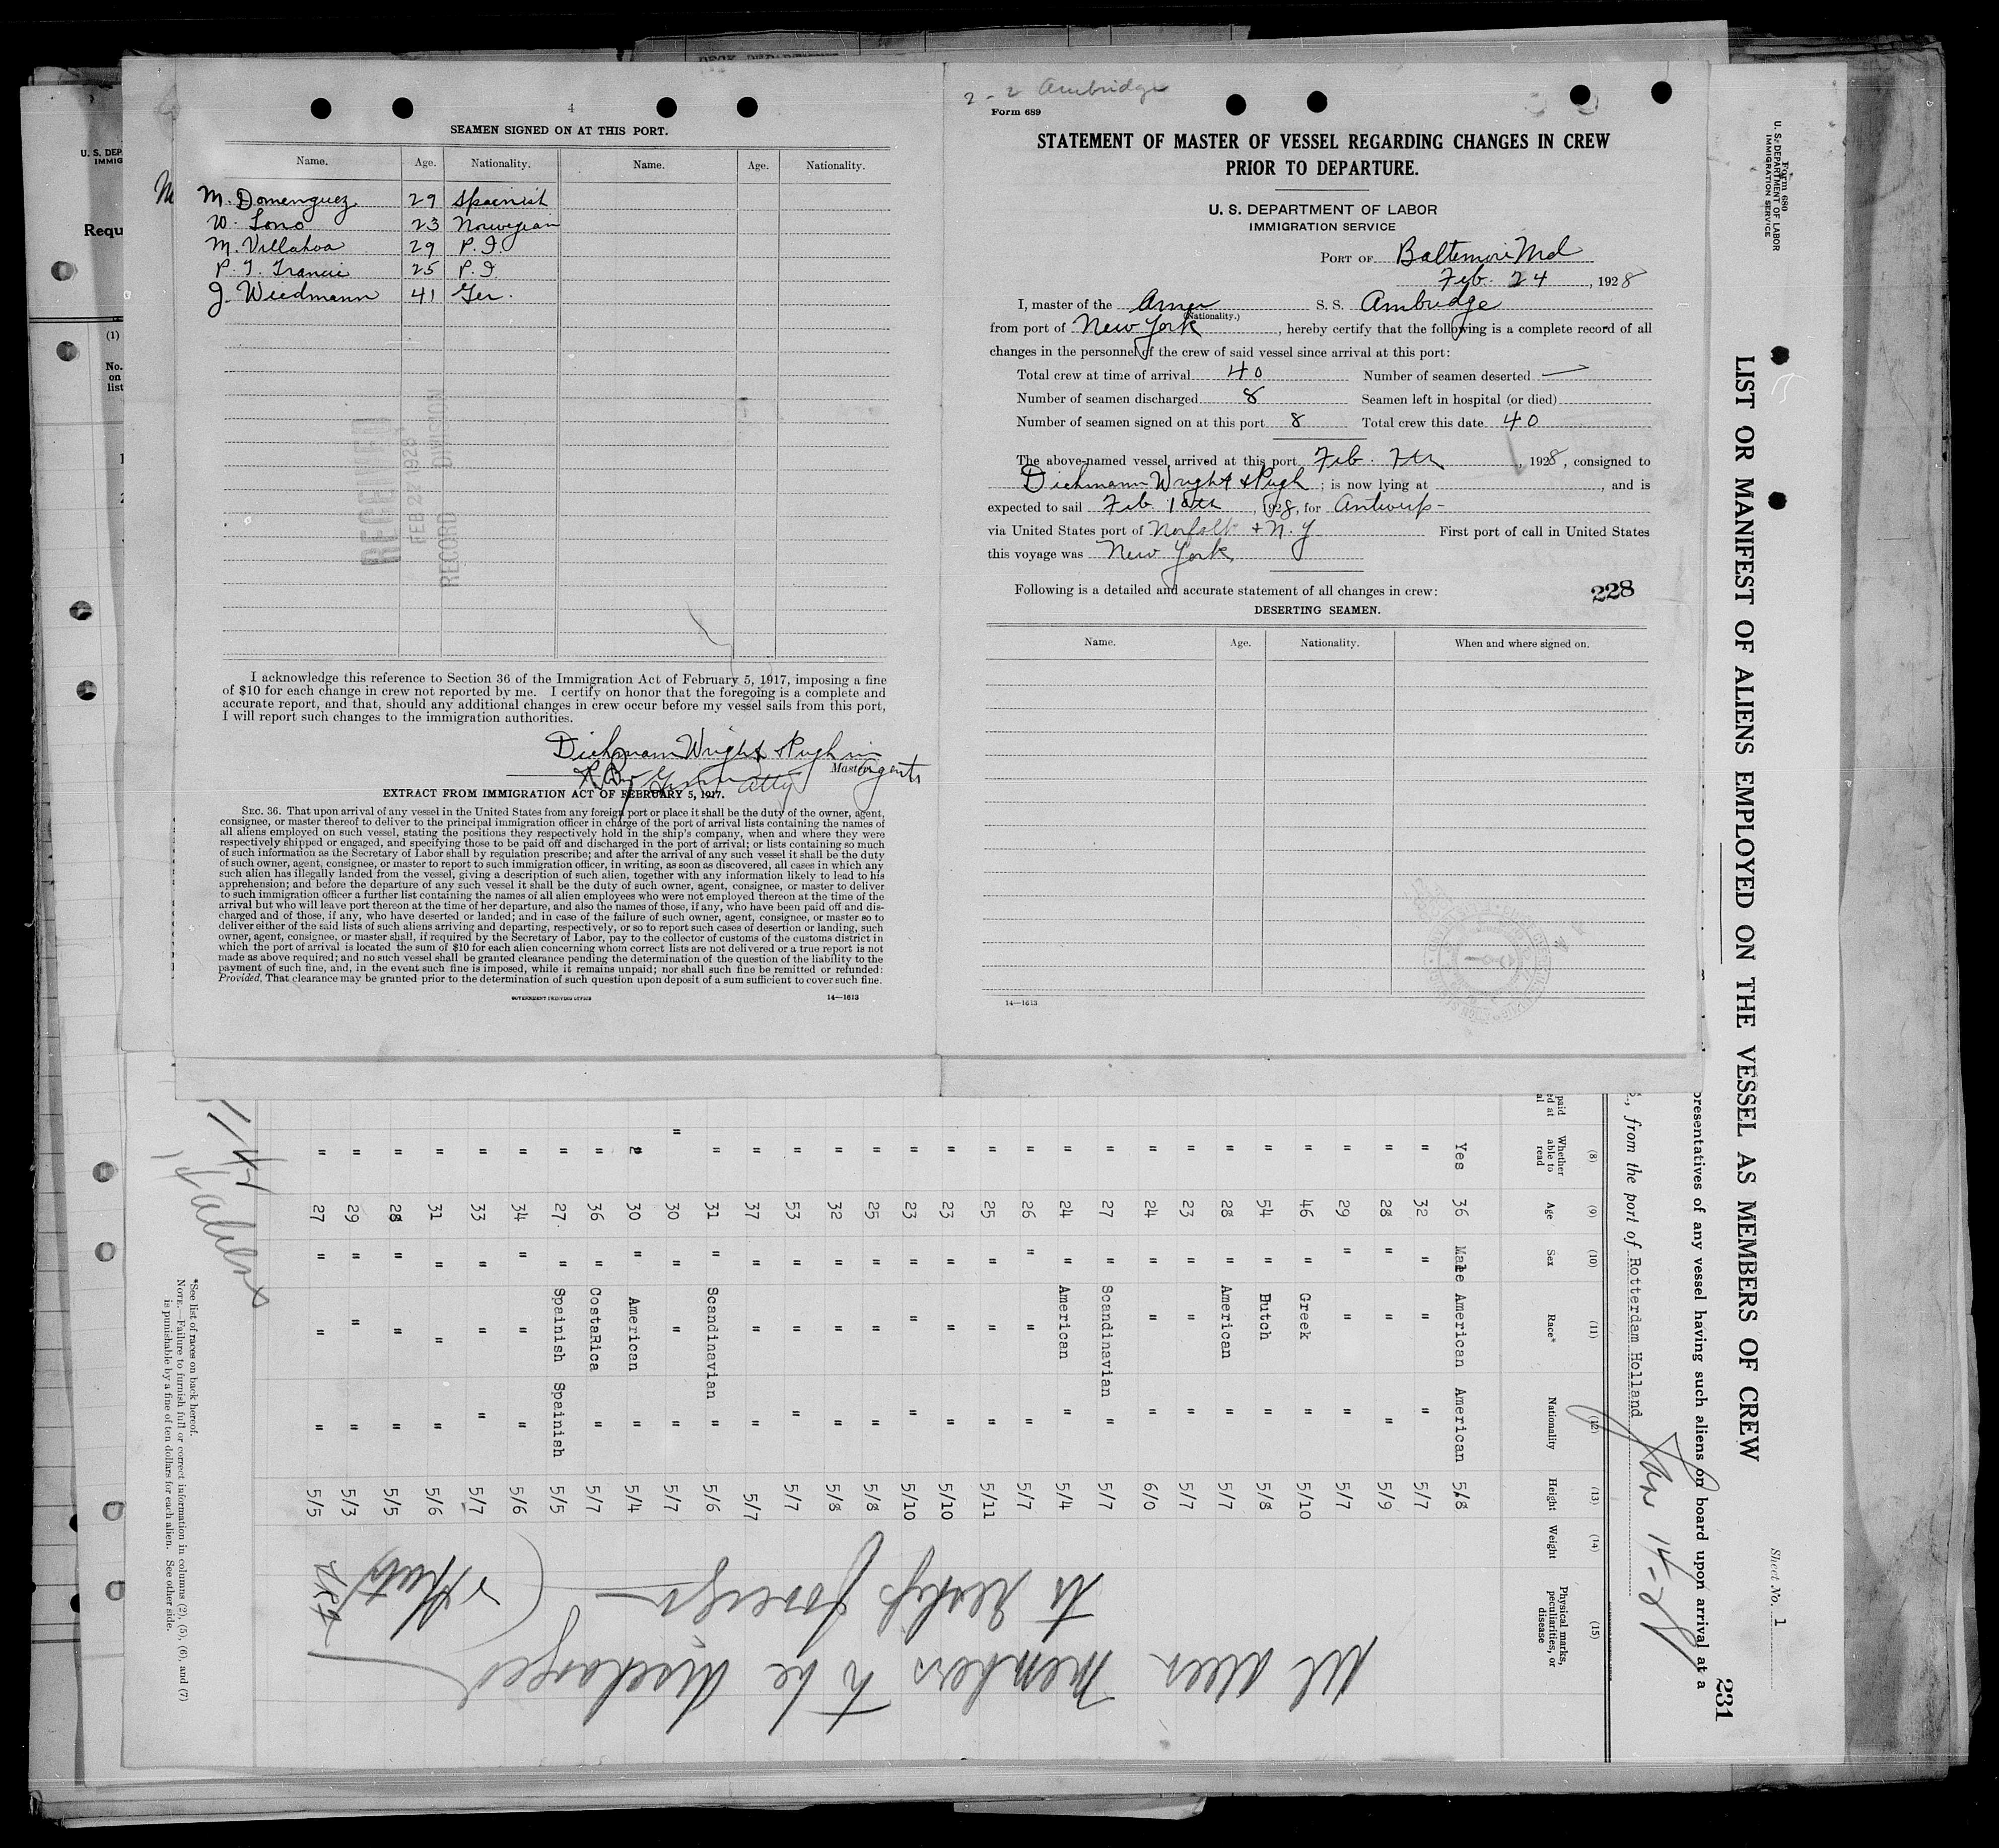 4
SEAMEN SIGNED ON AT THIS PORT.
Name. Age. Nationality. Name. Age. Nationality.
M. Domenguez 29 Spainish
W. 23 Norwegian
M. Villahoa 29 P.I.
P. T. Francie 25 P.I.
J. Wiedmann 41 Ger.
RECEIVED
FEB 27 1928
RECORD DIVISION
I acknowledge this reference to Section 36 of the Immigration Act of February 5, 1917, imposing a fine
of $10 for each change in crew not reported by me. I certify on honor that the foregoing is a complete and
accurate report, and that, should any additional changes in crew occur before my vessel sails from this port,
I will report such changes to the immigration authorities.
Dichmann Wright & Pugh inc
Master Agents
Atty
EXTRACT FROM IMMIGRATION ACT OF FEBRUARY 5, 1917.
SEC. 36. That upon arrival of any vessel in the United States from any foreign port or place it shall be the duty of the owner, agent,
consignee, or master thereof to deliver to the principal immigration officer in charge of the port of arrival lists containing the names of
all aliens employed on such vessel, stating the positions they respectively hold in the ship's company, when and where they were
respectively shipped or engaged, and specifying those to be paid off and discharged in the port of arrival; or lists containing so much
of such information as the Secretary of Labor shall by regulation prescribe; and after the arrival of any such vessel it shall be the duty
of such owner, agent, consignee, or master to report to such immigration officer, in writing, as soon as discovered, all cases in which any
such alien has illegally landed from the vessel, giving a description of such alien, together with any information likely to lead to his
apprehension; and before the departure of any such vessel it shall be the duty of such owner, agent, consignee, or master to deliver
to such immigration officer a further list containing the names of all alien employees who were not employed thereon at the time of the
arrival but who will leave port thereon at the time of her departure, and also the names of those, if any, who have been paid off and dis-
charged and of those, if any, who have deserted or landed; and in case of the failure of such owner, agent, consignee, or master so to
deliver either of the said lists of such aliens arriving and departing, respectively, or so to report such cases of desertion or landing, such
owner, agent, consignee, or master shall, if required by the Secretary of Labor, pay to the collector of customs of the customs district in
which the port of arrival is located the sum of $10 for each alien concerning whom correct lists are not delivered or a true report is not
made as above required; and no such vessel shall be granted clearance pending the determination of the question of the liability to the
payment of such fine, and, in the event such fine is imposed, while it remains unpaid; nor shall such fine be remitted or refunded:
Provided, That clearance may be granted prior to the determination of such question upon deposit of a sum sufficient to cover such fine.
GOVERNMENT PRINTING OFFICE 14—1613
2 - 2 Ambridge
Form 689
STATEMENT OF MASTER OF VESSEL REGARDING CHANGES IN CREW
PRIOR TO DEPARTURE.
U. S. DEPARTMENT OF LABOR
IMMIGRATION SERVICE
PORT OF Baltimore Md
Feb. 24, 1928
I, master of the Amer S. S. Ambridge
(Nationality.)
from port of New York, hereby certify that the following is a complete record of all
changes in the personnel of the crew of said vessel since arrival at this port:
Total crew at time of arrival 40 Number of seamen deserted —
Number of seamen discharged 8 Seamen left in hospital (or died)
Number of seamen signed on at this port 8 Total crew this date 40
The above-named vessel arrived at this port Feb. 7th, 1928, consigned to
Dichmann Wright & Pugh; is now lying at , and is
expected to sail Feb 10th, 1928, for Antwerp -
via United States port of Norfolk + N.Y First port of call in United States
this voyage was New York
Following is a detailed and accurate statement of all changes in crew:
228
DESERTING SEAMEN.
Name. Age. Nationality. When and where signed on.
14—1613
U. S. DEP
IMMIG
Requ
(1)
No.
on
list
Form 680
U. S. DEPARTMENT OF LABOR
IMMIGRATION SERVICE
LIST OR MANIFEST OF ALIENS EMPLOYED ON THE VESSEL AS MEMBERS OF CREW
Sheet No. 1
231
presentatives of any vessel having such aliens on board upon arrival at a
, from the port of Rotterdam Holland
Jan 14-28
(8) (9) (10) (11) (12) (13) (14) (15)
Whether able to read Age Sex Race* Nationality Height Weight Physical marks, peculiarities, or disease
Yes 36 Male American American 5/8
" 32 " " " 5/7
" 28 " " " 5/9
" 29 " " " 5/7
" 46 " Greek " 5/10
" 54 " Dutch " 5/8
" 28 " American " 5/7
" 23 " " " 5/7
" 24 " " " 6/0
" 27 " Scandinavian " 5/7
" 24 " American " 5/4
" 26 " " " 5/7
" 25 " " " 5/11
" 23 " " " 5/10
" 23 " " " 5/10
" 25 " " " 5/8
" 32 " " " 5/8
" 53 " " " 5/7
" 37 " " " 5/7
" 31 " Scandinavian " 5/6
" 30 " " " 5/7
" 30 " American " 5/4
" 36 " CostaRica " 5/7
" 27 " Spainish Spainish 5/5
" 34 " " " 5/6
" 33 " " " 5/7
" 31 " " " 5/6
" 28 " " " 5/5
" 29 " " " 5/3
" 27 " " " 5/5
All members to be discharged
to reship foreign
*See list of races on back hereof.
NOTE.—Failure to furnish full or correct information in columns (2), (5), (6), and (7)
is punishable by a fine of ten dollars for each alien. See other side.